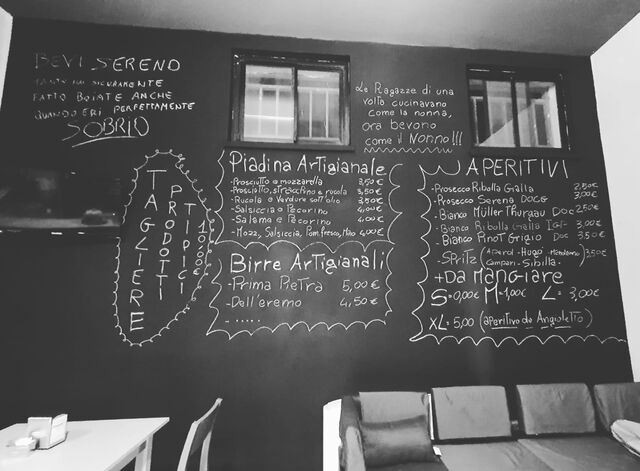 BEVI SERENO
TANTO HAI SICURAMENTE
FATTO BOIATE ANCHE
QUANDO ERI PERFETTAMENTE
SOBRIO
Le Ragazze di una
volta cucinavano
come la nonna,
ora bevono
come il Nonno!!!
TAGLIERE
PRODOTTI
TIPICI
10,00€
Piadina Artigianale
-Prosciutto e mozzarella 3,50€
-Prosciutto, stracchino e rucola 3,50€
-Rucola e Verdure sott'olio 3,50€
-Salsiccia e Pecorino 4,00€
-Salame e Pecorino 4,00€
-Mozz, Salsiccia, Pom.fresco, Maio 4,00€
Birre Artigianali
-Prima Pietra 5,00€
-Dell'eremo 4,50€
- .....
APERITIVI
-Prosecco Ribolla Gialla 2,50€
-Prosecco Serena DOCG 3,00€
-Bianco Müller Thurgau Doc 2,50€
-Bianco Ribolla Gialla IGT 3,00€
-Bianco Pinot Grigio Doc 3,50€
-Spritz (Aperol-Hugo- 3,50€
Campari-Sibilla-)
+DA MANGIARE
S=0,00€ M=1,00€ L=3,00€
XL=5,00 (aperitivo da Angioletto)